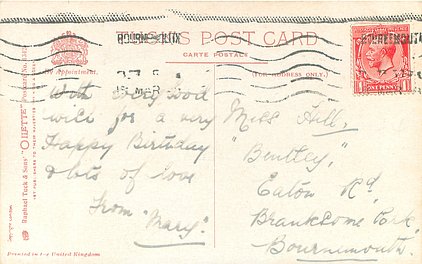 BOURNEMOUTH
POST CARD
BOURNEMOUTH
CARTE POSTALE
By Appointment.
(FOR ADDRESS ONLY.)
ONE PENNY
MAR
With every good
wish for a very
Happy Birthday
& lots of love
from "Mary".
Miss Hill,
"Bentley,"
Eaton Rd,
Branksome Park,
Bournemouth.
Raphael Tuck & Sons' "OILETTE"
Copyright
Printed in the United Kingdom